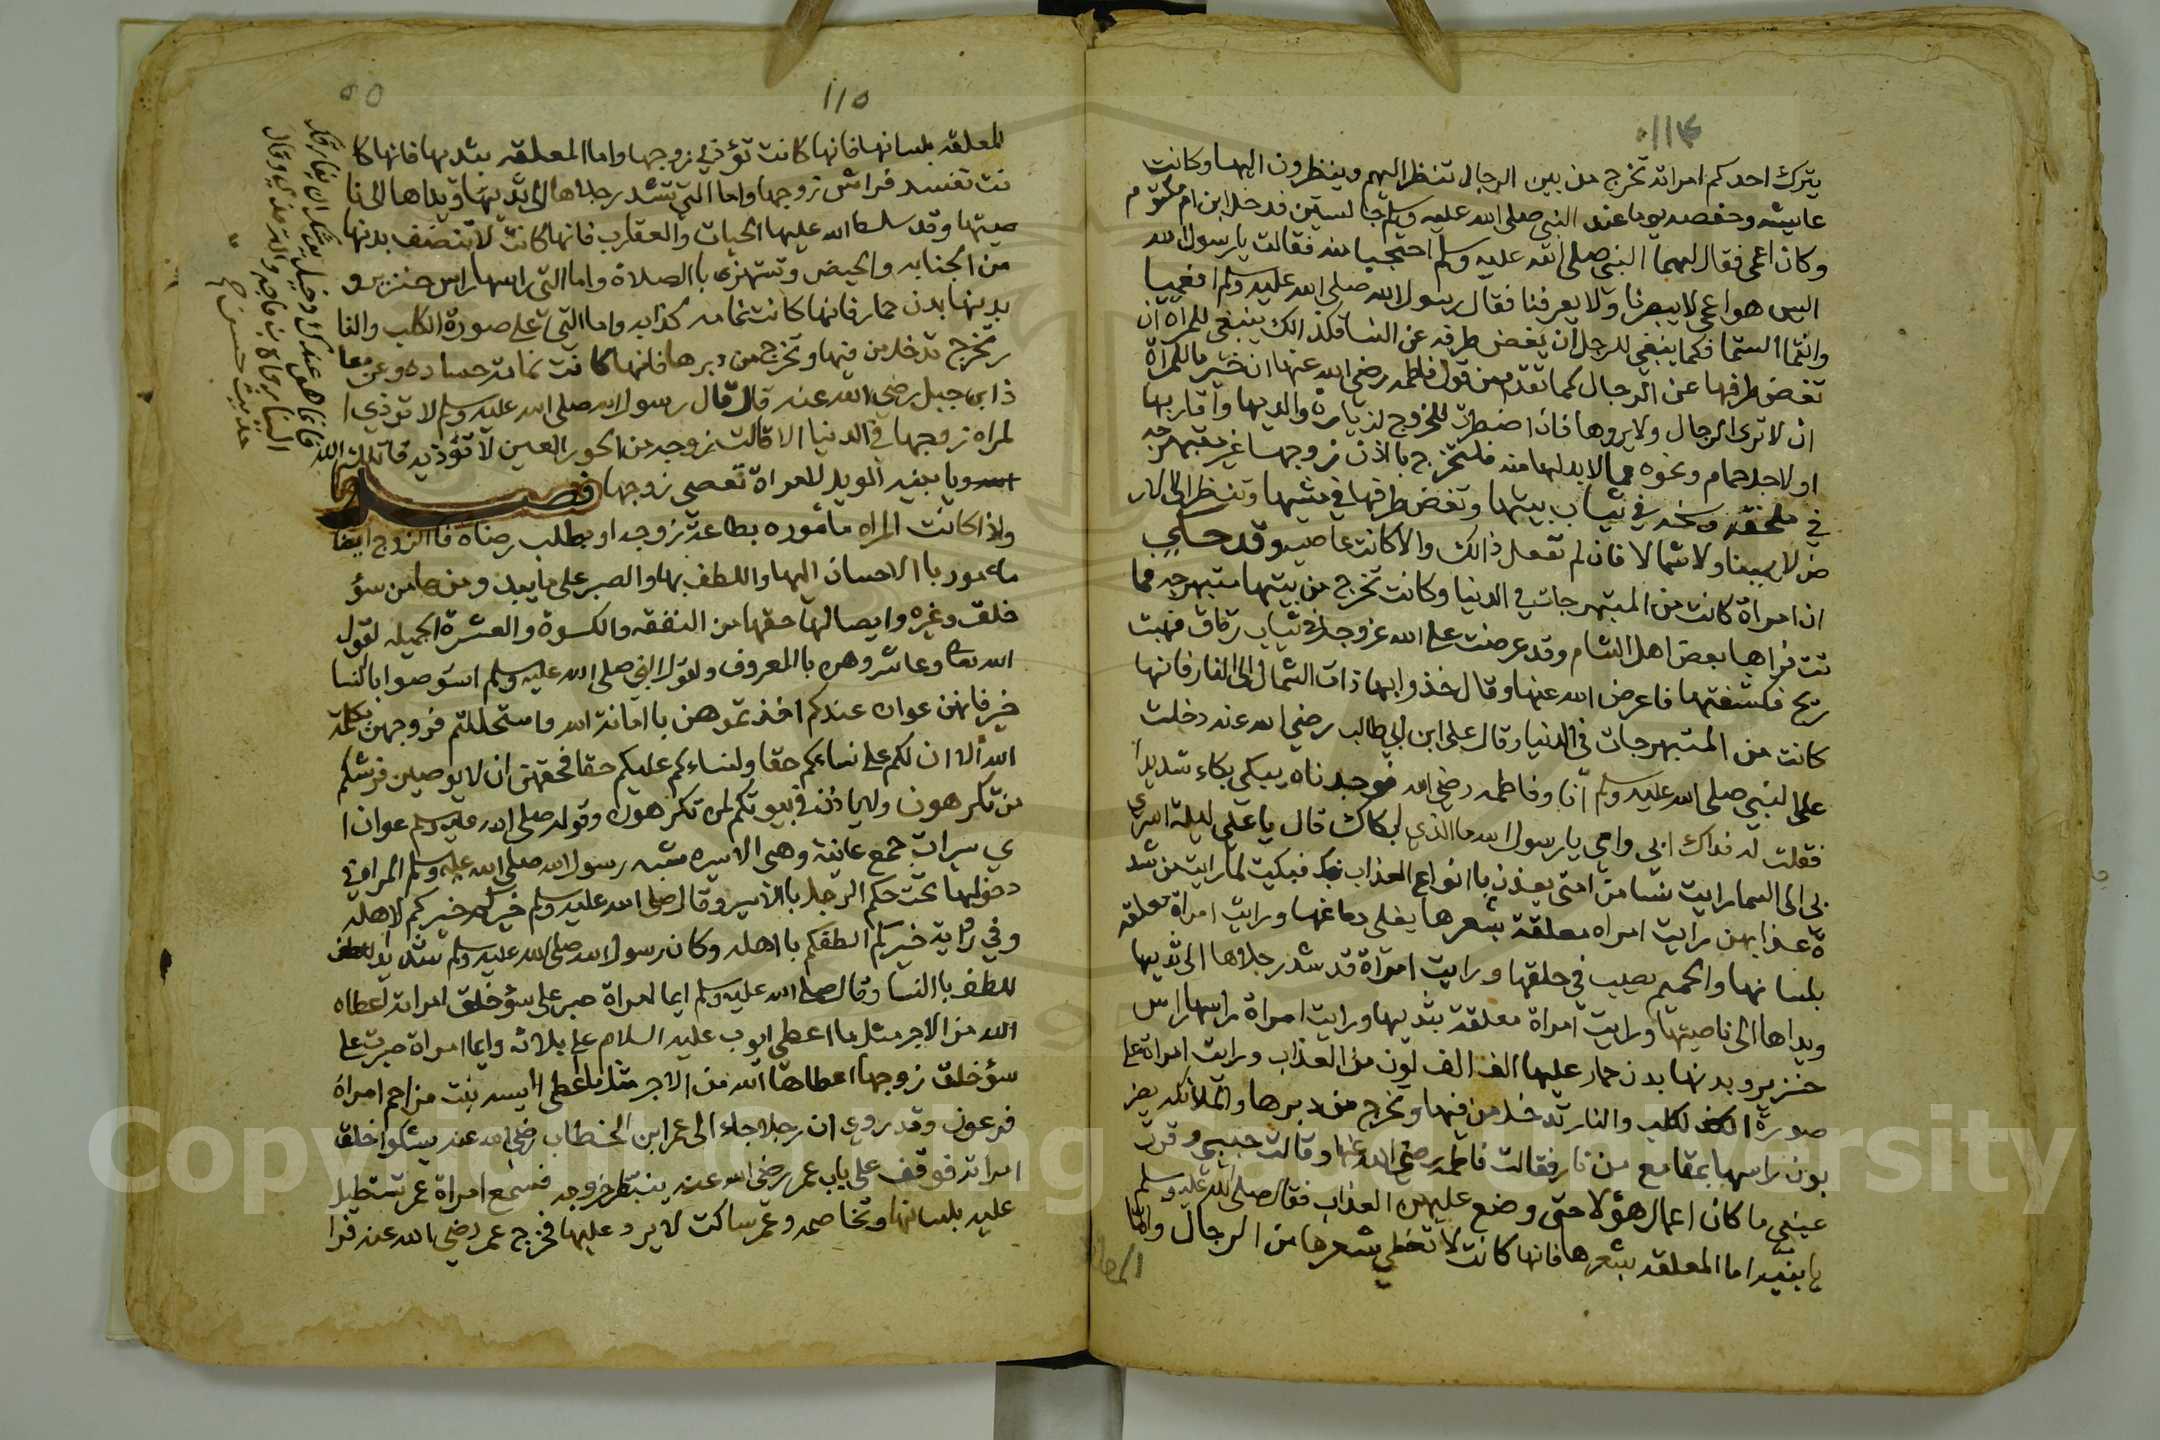 ١١٤
يترك احدكم امراته تخرج من بين الرجال تنظر اليهم وينظرون اليها وكانت
عايشه وحفصه يوما عند النبي صلى الله عليه وسلم جالستين فدخل ابن ام مكتوم
وكان اعمى فقال لهما النبي صلى الله عليه وسلم احتجبا منه فقالت يا رسول الله
اليس هو اعمى لا يبصرنا ولا يعرفنا فقال رسول الله صلى الله عليه وسلم افعميا
وانتما الستما فكما ينبغي للرجل ان يغض طرفه عن النسا فكذالك ينبغي للمراه ان
تغض طرفها عن الرجال كما تقدم من قول فاطمه رضي الله عنها ان خير ما للمراة
ان لا ترى الرجال ولا يروها فان اضطرت للخروج لزيارة والديها واقاربها
او لاجل حمام ونحوه مما لا بد لها منه فلتخرج باذن زوجها غير متبهرجه
في ملحفه وسخه في ثياب بيتها وتغض طرفها في مشيها وتنظر الى الار
ض لا يمينا ولا شمالا فان لم تفعل ذالك والا كانت عاصيه وقد حكي
ان امراة كانت من المتبهرجات في الدنيا وكانت تخرج من بيتها متبهرجه فما
تت فراها بعض اهل الشام وقد عرضت على الله عز وجل في ثياب رقاق فهبت
ريح فكشفتها فاعرض الله عنها وقال خذوا بها ذات الشمال الى النار فانها
كانت من المتبهرجات في الدنيا وقال علي ابن ابي طالب رضي الله عنه دخلت
على النبي صلى الله عليه وسلم انا وفاطمه رضي الله فوجدناه يبكي بكاء شديدا
فقلت له فداك ابي وامي يا رسول الله ما الذي ابكاك قال يا علي ليلة اسري
بي الى السما رايت نسا من امتي يعذبن باانواع العذاب فبكيت لما رايت من شد
ة عذابهن رايت امراه معلقة بشعرها يغلي دماغها ورايت امراة معلقه
بلسانها والحميم يصب في حلقها ورايت امراة قد شد رجلاها الى ثديها
ويداها الى ناصيتها ورايت امراة معلقة بثديها ورايت امراة راسها راس
خنزير وبدنها بدن حمار عليها الف الف لون من العذاب ورايت امراة على
صورة الكلب والنار تدخل من فيها وتخرج من دبرها والملائكه يضر
بون راسها بمقامع من نار فقالت فاطمه رضي الله عنها وقالت حبيبي وقرت
عيني ما كان اعمال هؤلا حتى وضع عليهن العذاب فقال صلى الله عليه وسلم
يا بنيه اما المعلقه بشعرها فانها كانت لا تغطي شعرها من الرجال واما
المعلقه
١١٥
المعلقه بلسانها فانها كانت تؤذي زوجها واما المعلقه بثديها فانها كا
نت تفسد فراش زوجها واما التي تشد رجلاها الى ثديها ويداها الى نا
صيتها وقد سلط الله عليها الحيات والعقارب فانها كانت لا تنضف بدنها
من الجنابه والحيض وتستهزى باالصلاة واما التي راسها راس خنزير و
بدنها بدن حمار فانها كانت نمامه كذابه واما التي على صورة الكلب والنا
ر تدخل من فيها وتخرج من دبرها فانها كانت نمامة حساده وعن معا
ذ ابن جبل رضي الله عنه قال قال رسول الله صلى الله عليه وسلم لا توذي ا
لمراه زوجها في الدنيا الا قالت زوجه من الحور العين لا تؤذيه قاتلك الله
ويا بنيه الويل للمراة تعصي زوجها فصل
واذا كانت المراه ماموره بطاعة زوجها وبطلب رضاه فاالزوج ايضا
مامور باالاحسان اليها واللطف بها والصبر على ما يبدو منها من سؤ
خلق وغيره وايصالها حقها من النفقه والكسوة والعشرة الجميله لقول
الله تعالى وعاشروهن باالمعروف ولقول النبي صلى الله عليه وسلم استوصوا باالنسا
خير فانهن عوان عندكم اخذتموهن باامانة الله واستحللتم فروجهن بكلمة
الله الا ان لكم على نساءكم حقا ولنساءكم عليكم حقا فحقهن ان لا يوطين فرشكم
من تكرهون ولا ياذن في بيوتكم لمن تكرهون وقوله صلى الله عليه وسلم عوان ا
ي سيرات جمع عانية وهي الاسيره شبه رسول الله صلى الله عليه وسلم المراه في
دخولها تحت حكم الرجل باالاسير وقال صلى الله عليه وسلم خيركم خيركم لاهله
وفي رواية خيركم الطفكم باهله وكان رسول الله صلى الله عليه وسلم شديد
للطف باالنسا وقال صلى الله عليه وسلم ايما امراة صبر على سؤ خلق امراته اعطاه
الله من الاجر مثل ما اعطى ايوب عليه السلام على بلائه وايما امراة صبرت على
سؤ خلق زوجها اعطاها الله من الاجر مثل ما اعطى اسيه بنت مزاحم امراة
فرعون وقد روي ان رجلا جاء الى عمر ابن الخطاب رضي الله عنه يشكوا خلق
امراته فوقف على باب عمر رضي الله عنه ينتظر خروجه فسمع امراة عمر تستطيل
عليه بلسانها وتخاصمه وعمر ساكت لا يرد عليها فخرج عمر رضي الله عنه فرا
الله فانما هو عندك دخيل يوشك ان يفارقك
الينا رواه ابن ماجه والترمذي وقال
حديث حسن
Copyright © King Saud University